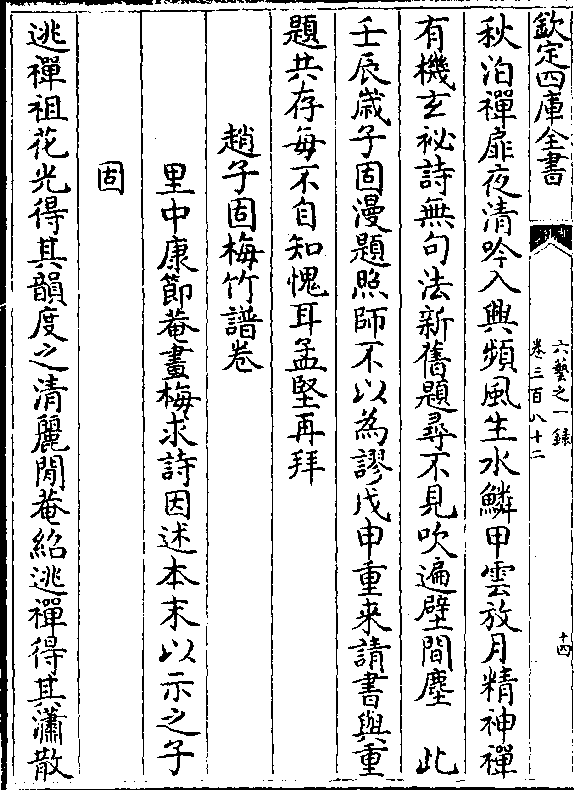 欽定四庫全書
六藝之一錄
卷三百八十二
十四
秋泊禪扉夜清吟入興頻風生水鱗甲雲放月精神禪
有機玄祕詩無句法新舊題尋不見吹遍壁間塵　此
壬辰歳子固漫題照師不以為謬戊申重来請書與重
題共存每不自知愧耳孟堅再拜
趙子固梅竹譜卷
里中康節菴畫梅求詩因述本末以示之子
固
逃禪祖花光得其韻度之清麗閒菴紹逃禪得其瀟散